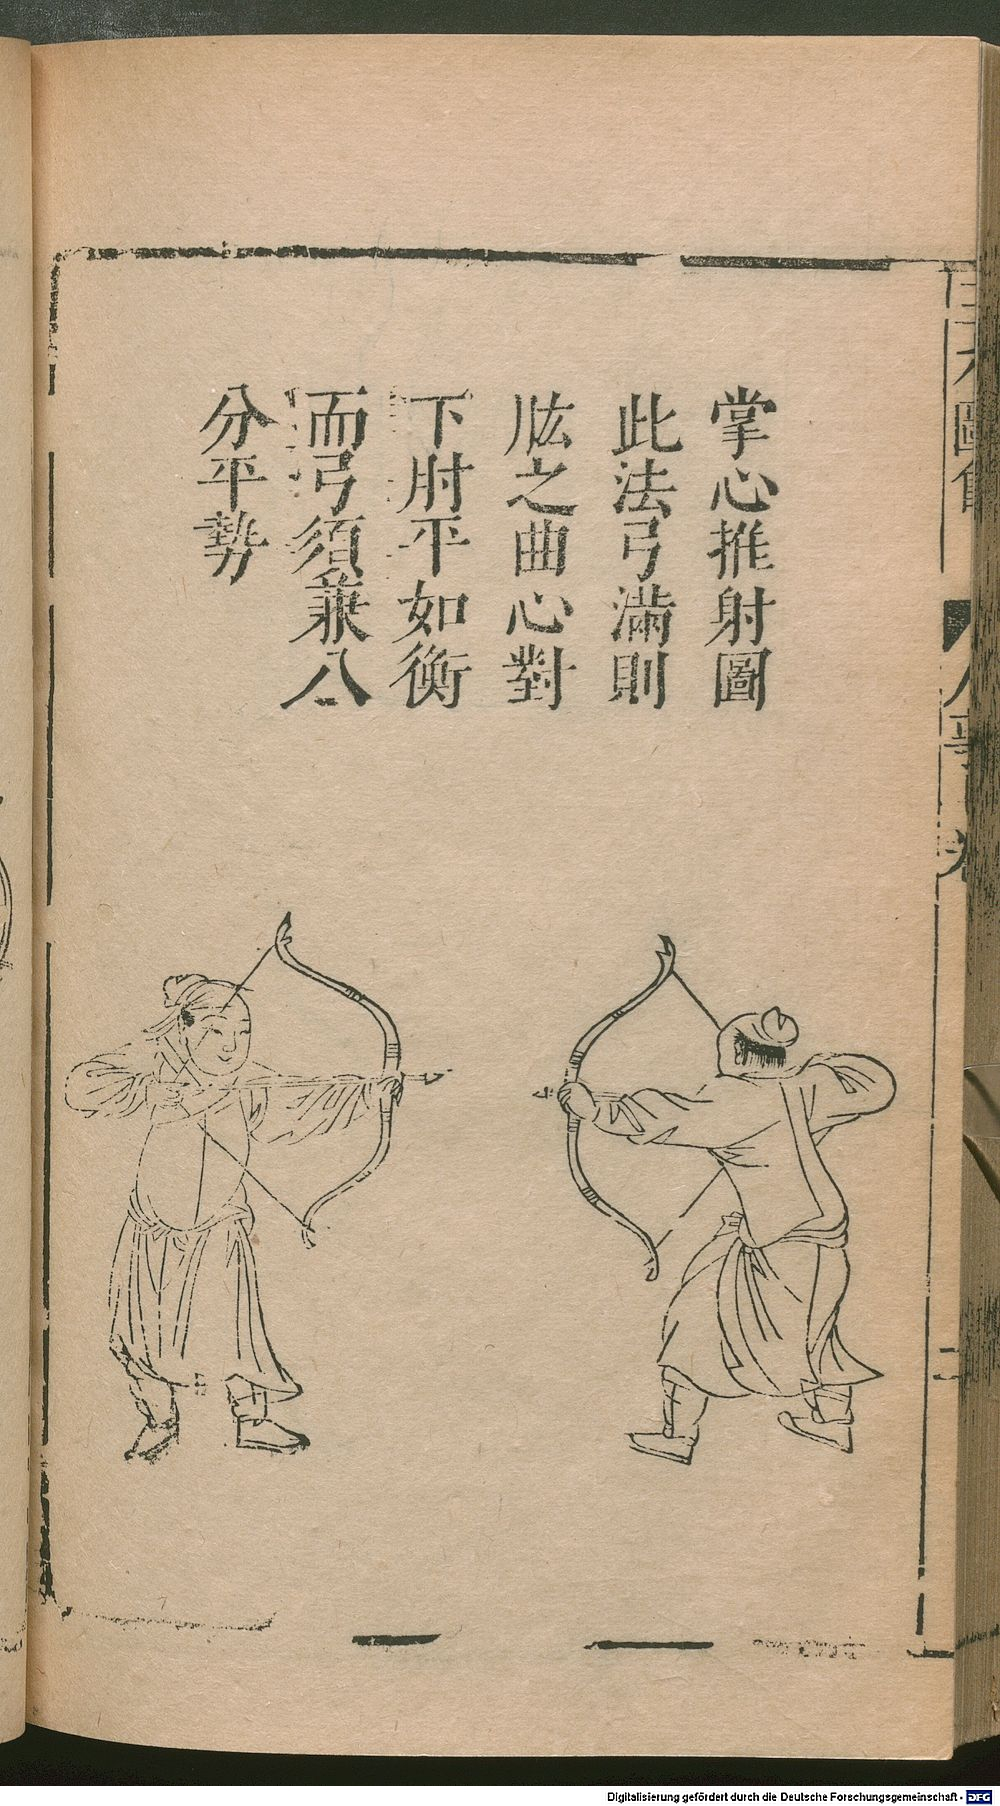 掌心推射圖
此法弓滿則
肱之曲心對
下肘平如衡
而弓須兼八
分平勢
Digitalisierung gefördert durch die Deutsche Forschungsgemeinschaft - DFG